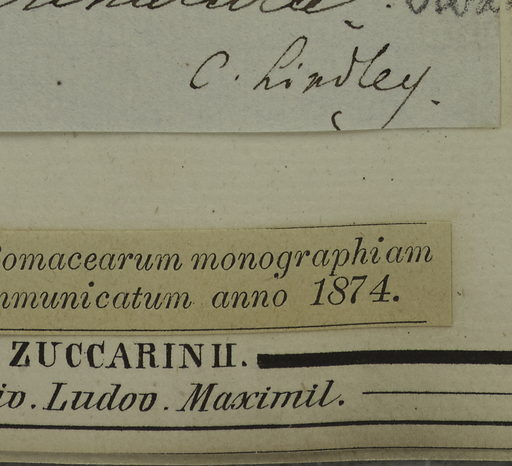 C. Lindley.
omacearum monographiam
mmunicatum anno 1874.
ZUCCARINII.
iv. Ludov. Maximil.